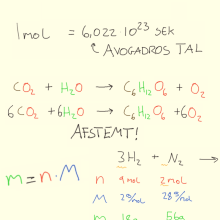 1mol = 6,022 · 10²³ STK
AVOGADROS TAL
CO₂ + H₂O → C₆H₁₂O₆ + O₂
6CO₂ + 6H₂O → C₆H₁₂O₆ + 6O₂
AFSTEMT!
3H₂ + N₂ →
m = n · M
n 9mol 2mol
M 2g/mol 28g/mol
m 18g 56g